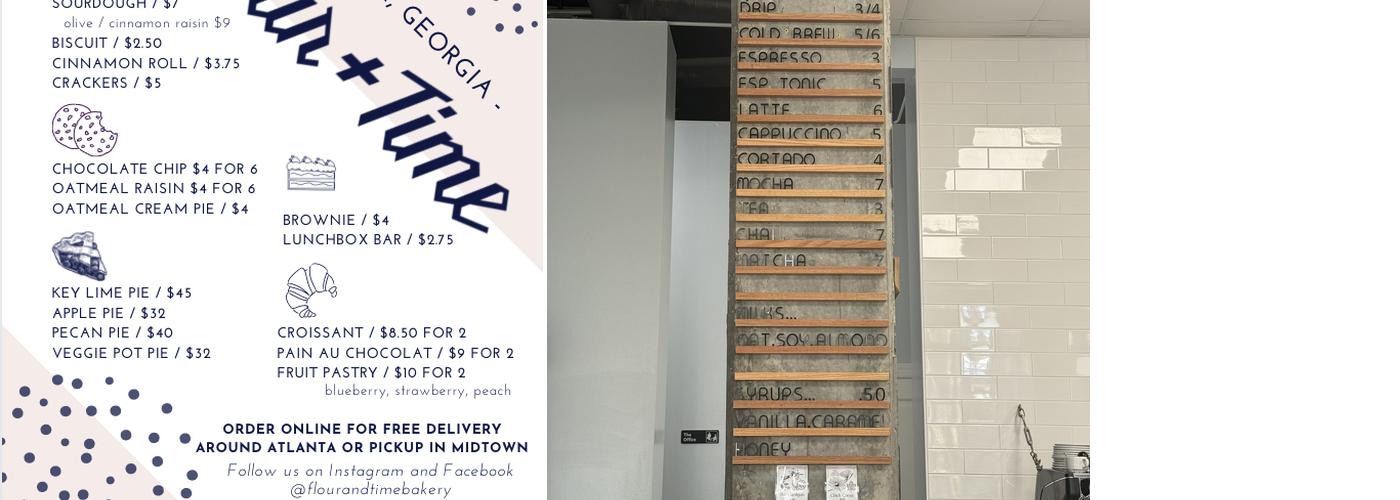 SOURDOUGH / $7
olive / cinnamon raisin $9
BISCUIT / $2.50
CINNAMON ROLL / $3.75
CRACKERS / $5
CHOCOLATE CHIP $4 FOR 6
OATMEAL RAISIN $4 FOR 6
OATMEAL CREAM PIE / $4
KEY LIME PIE / $45
APPLE PIE / $32
PECAN PIE / $40
VEGGIE POT PIE / $32
GEORGIA -
+ Time
BROWNIE / $4
LUNCHBOX BAR / $2.75
CROISSANT / $8.50 FOR 2
PAIN AU CHOCOLAT / $9 FOR 2
FRUIT PASTRY / $10 FOR 2
blueberry, strawberry, peach
ORDER ONLINE FOR FREE DELIVERY
AROUND ATLANTA OR PICKUP IN MIDTOWN
Follow us on Instagram and Facebook
@flourandtimebakery
DRIP 3/4
COLD BREW 5/6
ESPRESSO 3
ESP. TONIC 5
LATTE 6
CAPPUCCINO 5
CORTADO 4
MOCHA 7
TEA 3
CHAI 7
MATCHA 7
MILKS...
OAT,SOY,ALMOND
SYRUPS... .50
VANILLA,CARAMEL
HONEY
The
Office